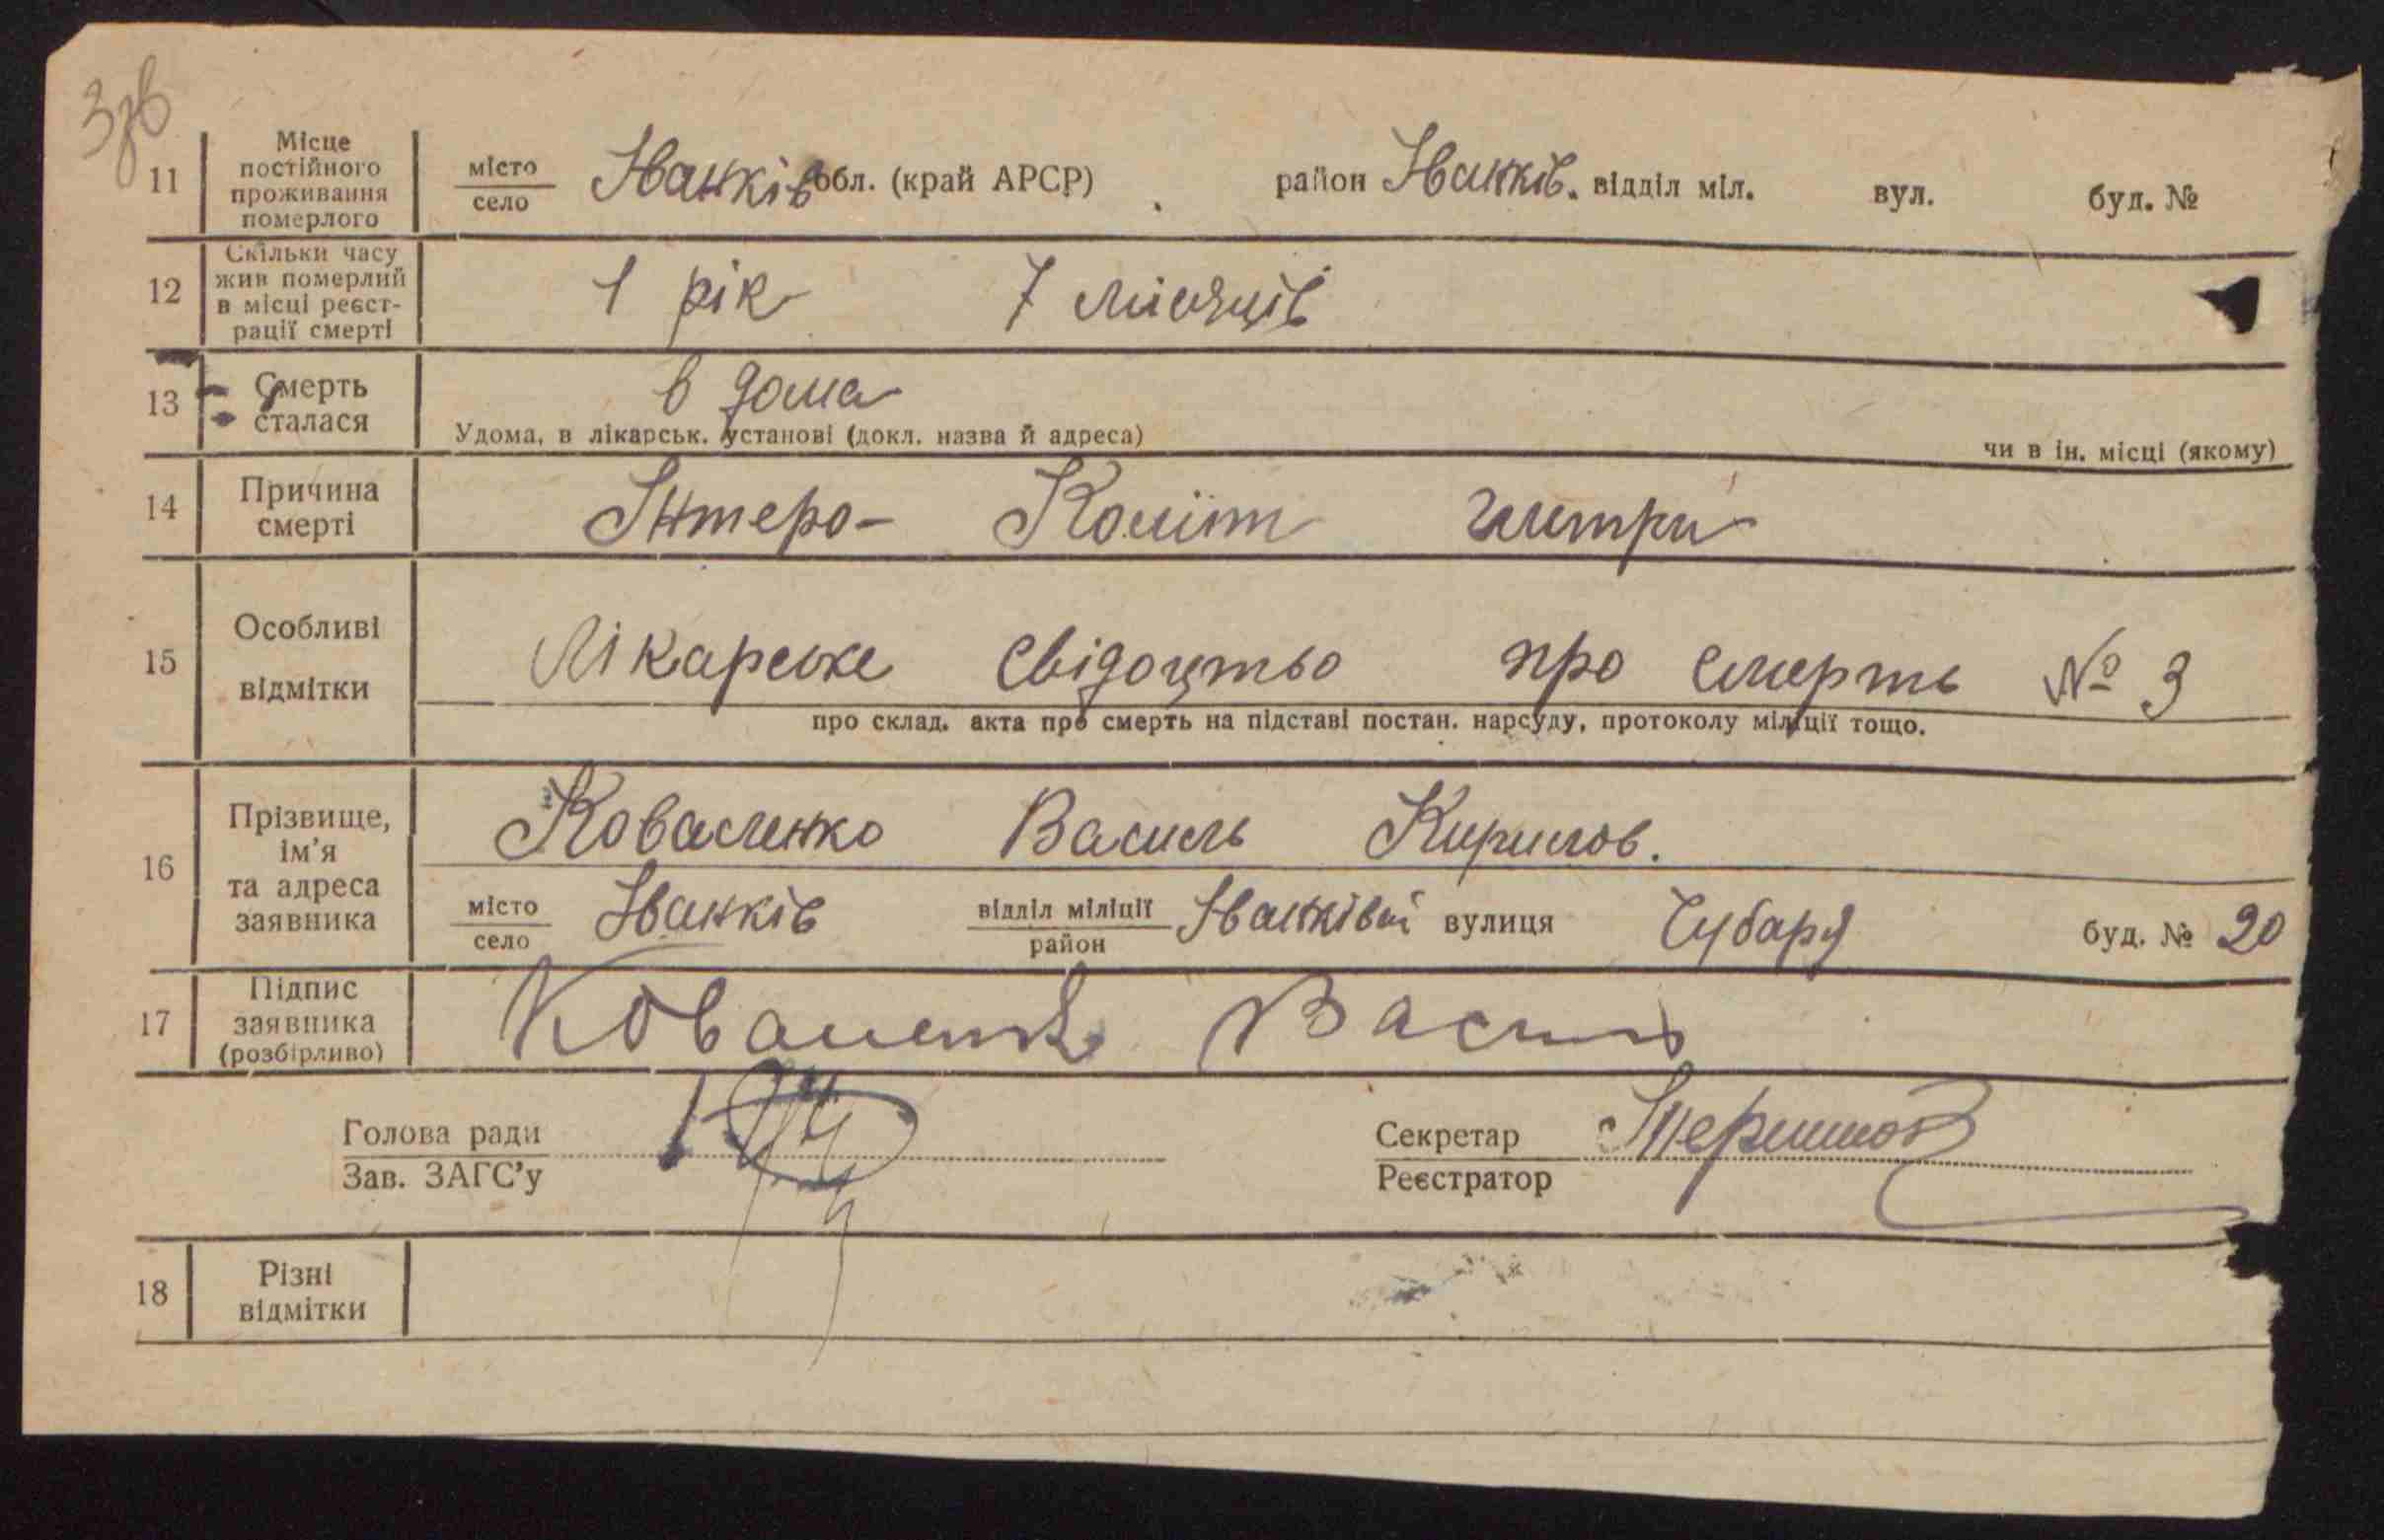 3зв
11 Місце постійного проживання померлого місто село Іванків обл. (край АРСР) район Іванків. відділ міл. вул. буд. №
12 Скільки часу жив померлий в місці реєстрації смерті 1 рік 7 місяців
13 Смерть сталася в дома
Удома, в лікарськ. установі (докл. назва й адреса) чи в ін. місці (якому)
14 Причина смерті Інтеро- Коліт
15 Особливі відмітки Лікарське свідоцтво про смерть № 3
про склад. акта про смерть на підставі постан. нарсуду, протоколу міліції тощо.
16 Прізвище, ім'я та адреса заявника Коваленко Василь Кирилов.
місто село Іванків відділ міліції район Іванківськ вулиця Чубаря буд. № 20
17 Підпис заявника (розбірливо) Коваленко Василь
Голова ради Секретар
Зав. ЗАГС'у Реєстратор
18 Різні відмітки